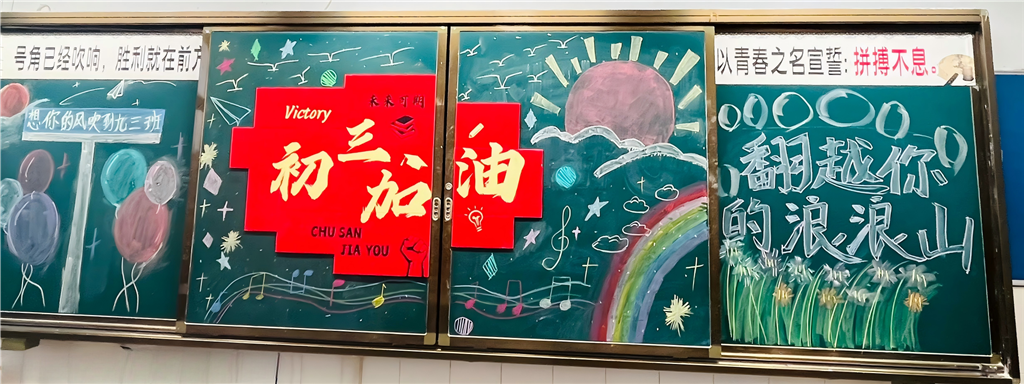 号角已经吹响，胜利就在前方
以青春之名宣誓：拼搏不息。
想你的风吹到九三班
Victory
未来可期
初三加油
CHU SAN
JIA YOU
翻越你
的浪浪山